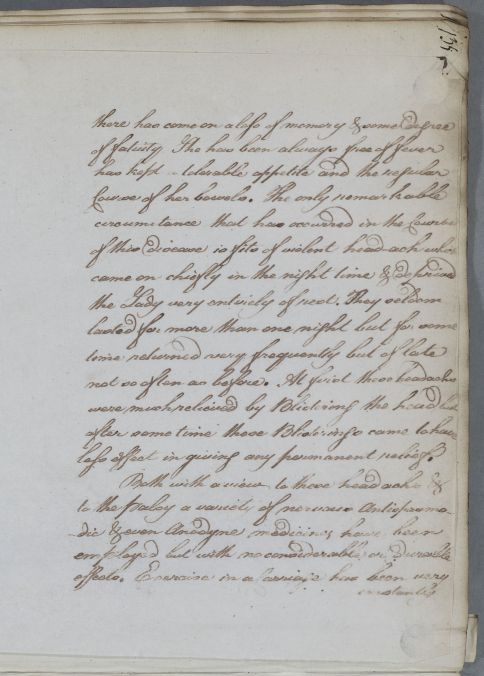 134
there has come on a loss of memory & some degree
of fatuity. She has been always free of fever
has kept a tolerable appetite and the regular
Course of her bowels. The only remarkable
circumstance that has occurred in the Course
of this disease is fits of violent headach which
came on chiefly in the night time & deprived
the Lady very entirely of rest. They seldom
lasted for more than one night but for some
time returned very frequently but of late
not so often as before. At first these headachs
were much relieved by Blistering the head but
after some time these Blisterings came to have
less effect in giving any permanent relief.
Both with a view to these headachs &
to the palsy a variety of nervous Antispasmo-
-dic & even Anodyne medicines have been
employed but with no considerable or durable
effects. Exercise in a Carriage has been very
constantly